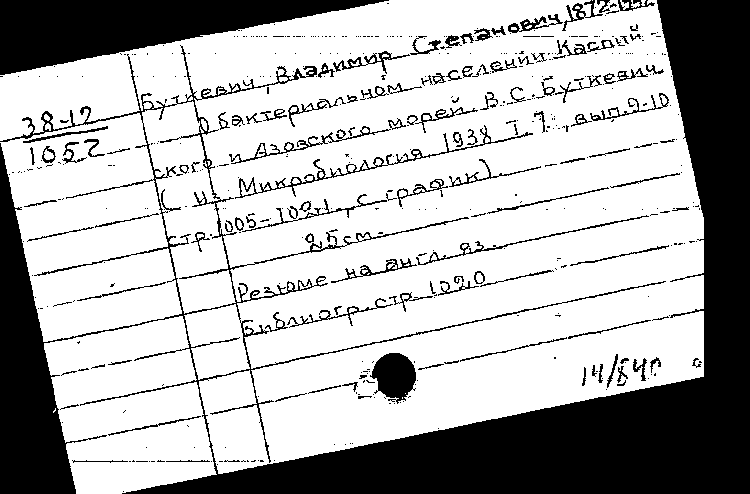 38-12
1057
Буткевич, Владимир Степанович, 1872-
О бактериальном населении Каспий
ского и Азовского морей. В.С. Буткевич
( из Микробиология 1938 Т. 7., вып. 9-10
стр. 1005-1021., с график).
25 cm.
Резюме на англ. яз.
Библиогр. стр 1020
14/840